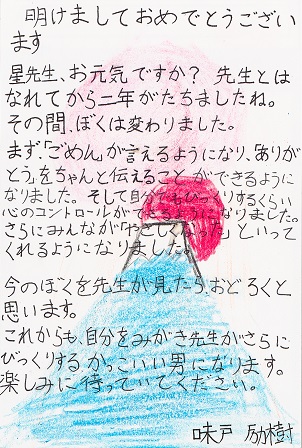 明けましておめでとうござい
ます
星先生、お元気ですか？ 先生とは
なれてから二年がたちましたね。
その間、ぼくは変わりました。
まず、「ごめん」が言えるようになり、「ありが
とう」をちゃんと伝えること ができるように
なりました。そして自分でもびっくりするくらい
心のコントロールができるようになりました。
さらにみんなが「やさしくなった」といって
くれるようになりました。
今のぼくを先生が見たらおどろくと
思います。
これからも、自分をみがき先生がさらに
びっくりする かっこいい男になります。
楽しみに待っていてください。
味戸 励樹